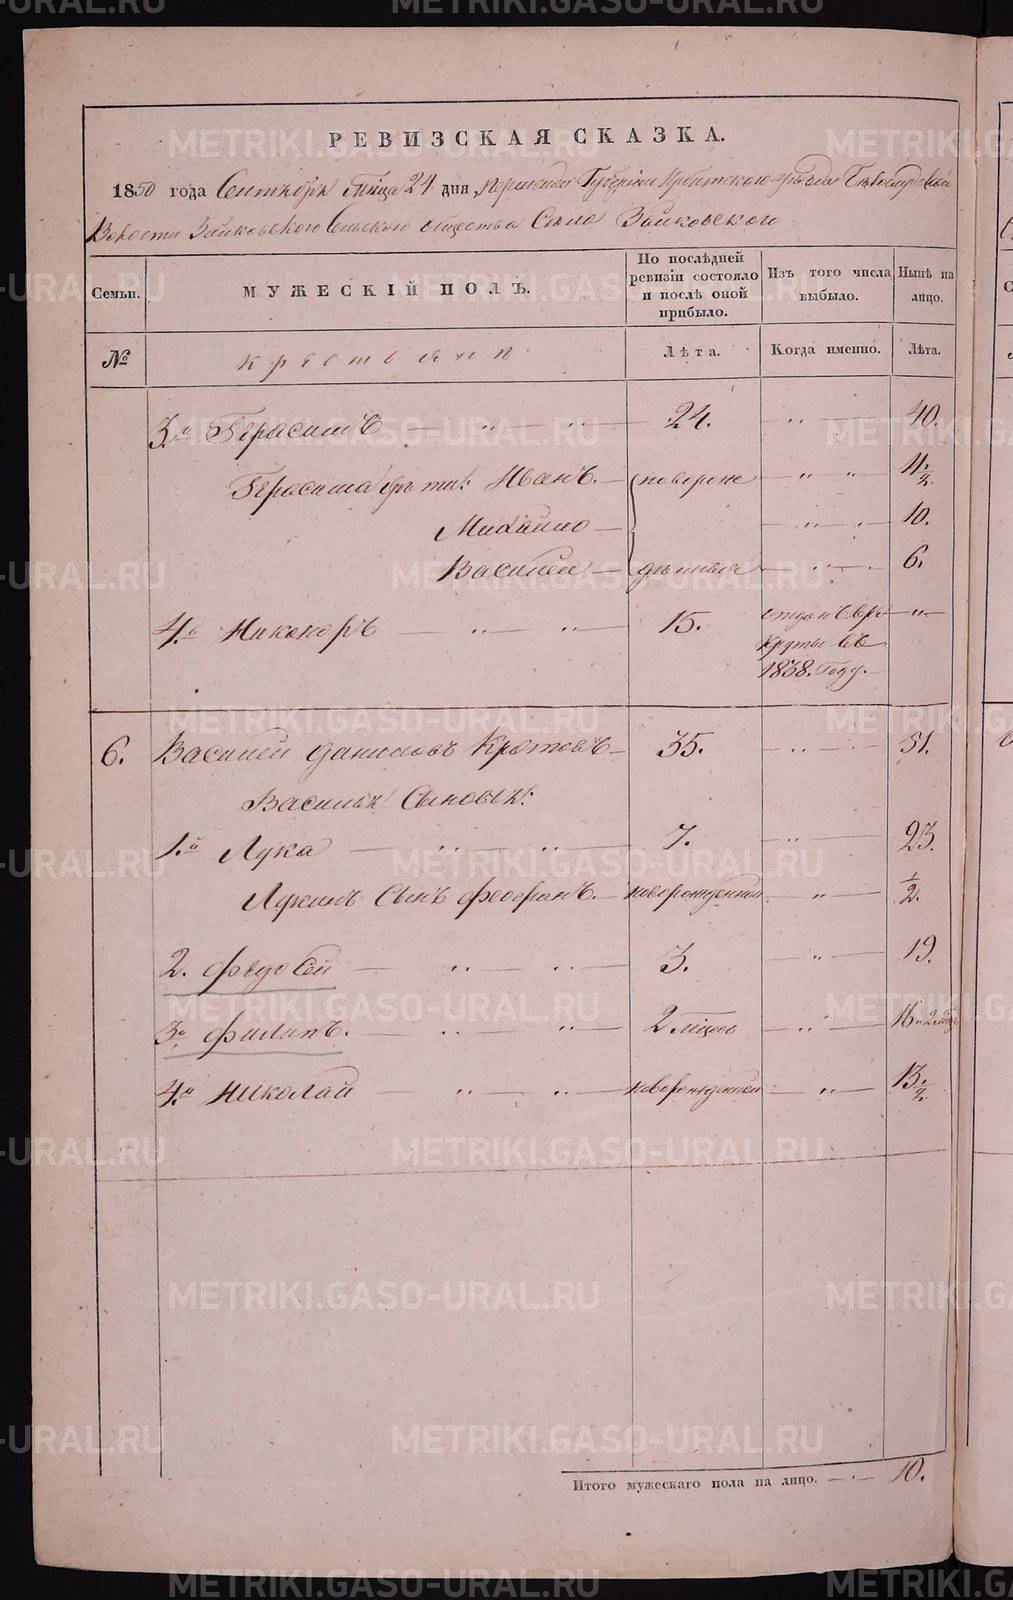 РЕВИЗСКАЯ СКАЗКА.
1850 года Сентября Мца 24 дня, Пермской Губернiи Ирбитского уѣзда
Волости Зайковскаго Сельскаго общества Село Зайковского
Семьи.
МУЖЕСКIЙ ПОЛЪ.
По послѣдней ревизiи состояло и послѣ оной прибыло.
Изъ того числа выбыло.
Нынѣ на лицо.
№
крестьянъ
Лѣта.
Когда именно.
Лѣта.
3.й Герасимъ — " — " — 24. " — 40.
Герасима дѣти: Иванъ. — новорож — " " — 4 1/2
Михайло — — " — 10.
Василей — денныя — " — 6.
4.й Никоноръ — " — " — 15. отданъ въ ре — " —
круты въ
1838. Году. —
6. Василей Даниловъ Кротовъ — 35. — " — 51.
Василья Сыновья:
1.й Лука — " — " — 7. " — 23.
Лукинъ Сынъ Феофанъ. — новорожденной — " — 1/2.
2. Федосей — " — " — 3. — " — 19.
3.й Филипъ. — " " — 2 мцов — " — 16 и 2 мца
4.й Николай " — " — новорожденной — " — 13 1/2.
Итого мужескаго пола на лицо. — " — 10.
METRIKI.GASO-URAL.RU